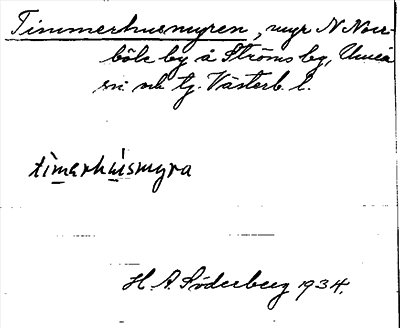 Timmerhusmyren, myr N Norr-
böle by å Ströms bg, Umeå
sn och tg. Västerb. l.
timerhusmyra
H. A. Söderberg 1934.